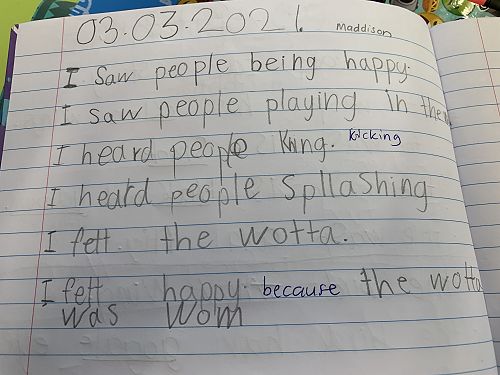 03.03.2021. Maddison
I saw people being happy.
I saw people playing in the
I heard people King. kicking
I heard people Spllashing
I felt the wotta.
I felt happy. because the wotta
was wom